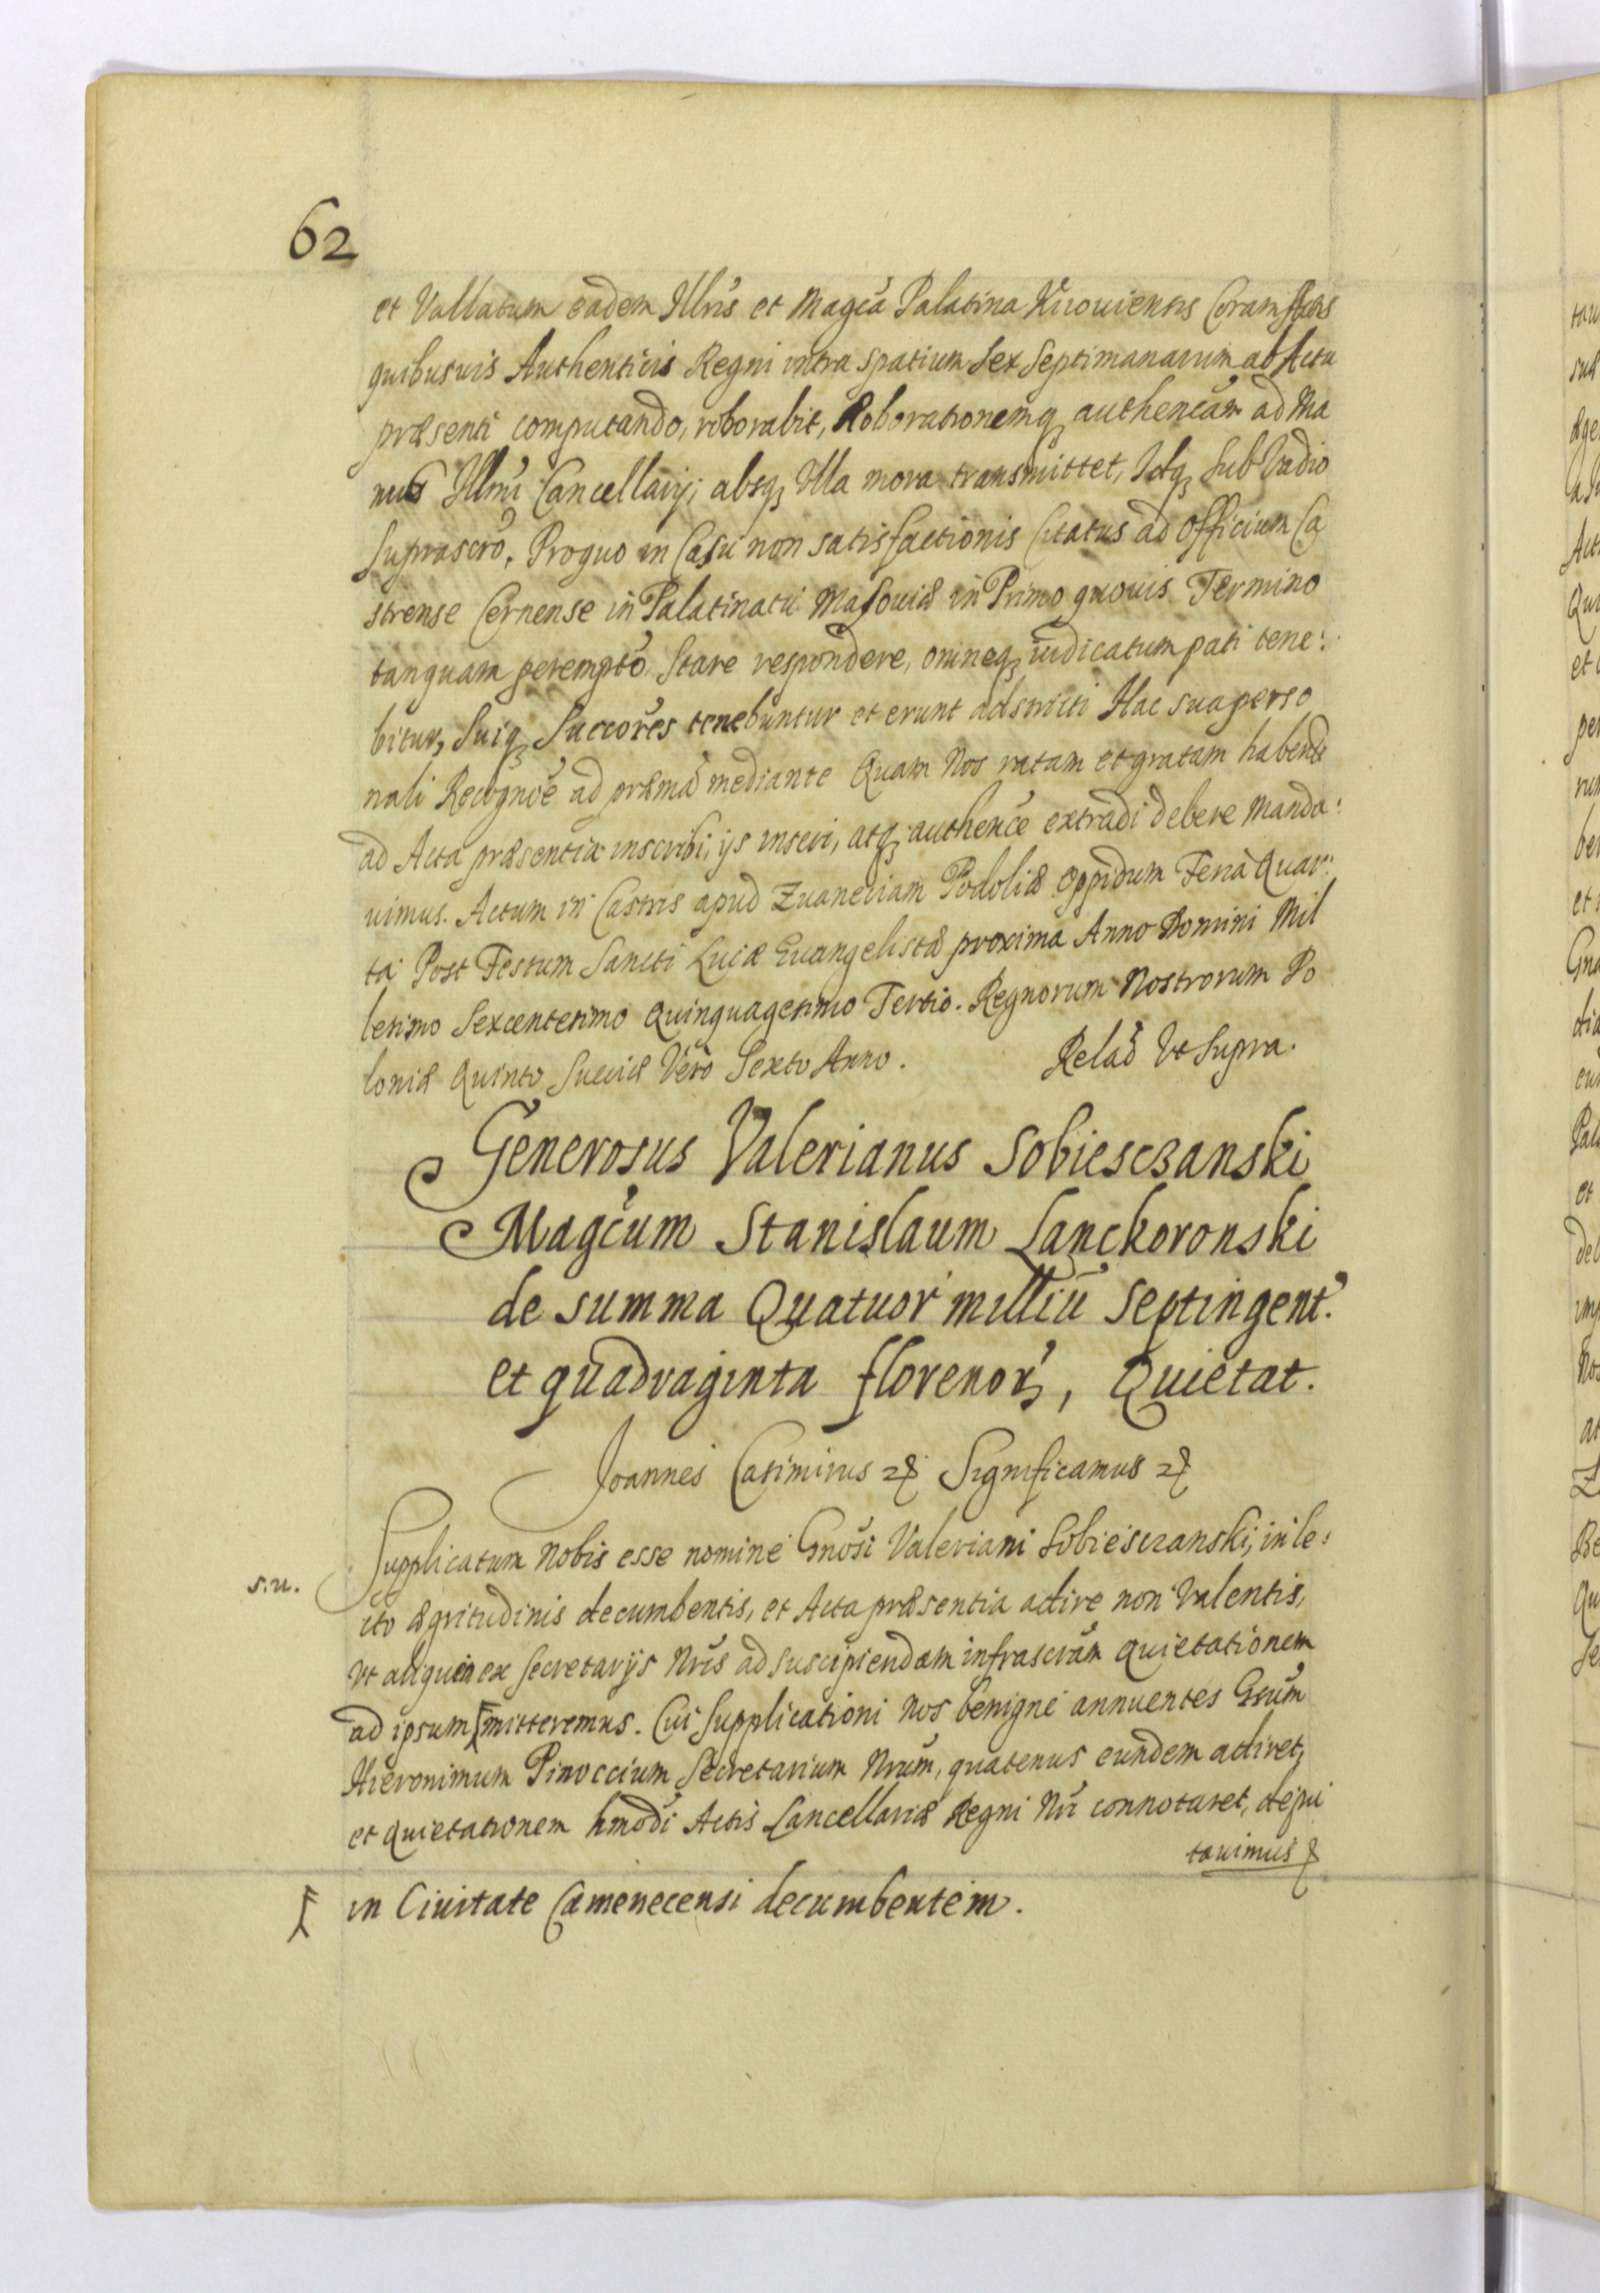 62
et Vallatum eadem Illris et Magca Palatina Kiiouiensis Coram Actis
quibusuis Authenticis Regni intra spatium Sex Septimanarum ab Actu
præsenti computando, roborabit, Roborationemq authencam ad Ma
nus Illmi Cancellarij; absq Vlla mora transmittet, Idq Sub Vadio
Suprascro, Proquo in Casu non satisfactionis Citatus ad Officium Ca
strense Cernense in Palatinatu Masouiæ in Primo quouis Termino
tanquam perempto Stare respondere, omneq iudicatum pati tene:
bitur, Suiq Succores tenebuntur et erunt adstricti Hac sua perso
nali Recognoe ad præma mediante Quam Nos ratam et gratam habendo
ad Acta præsentia inscribi, ijs inseri, atq authence extradi debere Manda:
uimus. Actum in Castris apud Zuaneciam Podoliæ Oppidum Feria Quar:
ta Post Festum Sancti Lucæ Euangelistæ proxima Anno Domini Mil
lesimo Sexcentesimo Quinquagesimo Tertio. Regnorum Nostrorum Po
loniæ Quinto Sueciæ Vero Sexto Anno. Relao Vt Supra.
Generosus Valerianus Sobiesczanski
Magcum Stanislaum Lanckoronski
de summa Quatuor milliu Septingent.
et quadraginta florenor, Quietat.
Joannes Casimirus & Significamus &
Supplicatum Nobis esse nomine Gnosi Valeriani Sobiesczanski, in le:
s.n.
cto ægritudinis decumbentis, et Acta præsentia adire non Valentis,
Vt aliquem ex Secretarijs Nris ad suscipiendam infrascram quietationem
ad ipsum mitteremus. Cui Supplicationi Nos benigne annuentes Gsum
Hieronimum Pinoccium Secretarium Nrum, quatenus eundem adiret,
et quietationem hmodi Actis Cancellariæ Regni Nri connotaret, depu
tauimus &
in Ciuitate Camenecensi decumbentem.